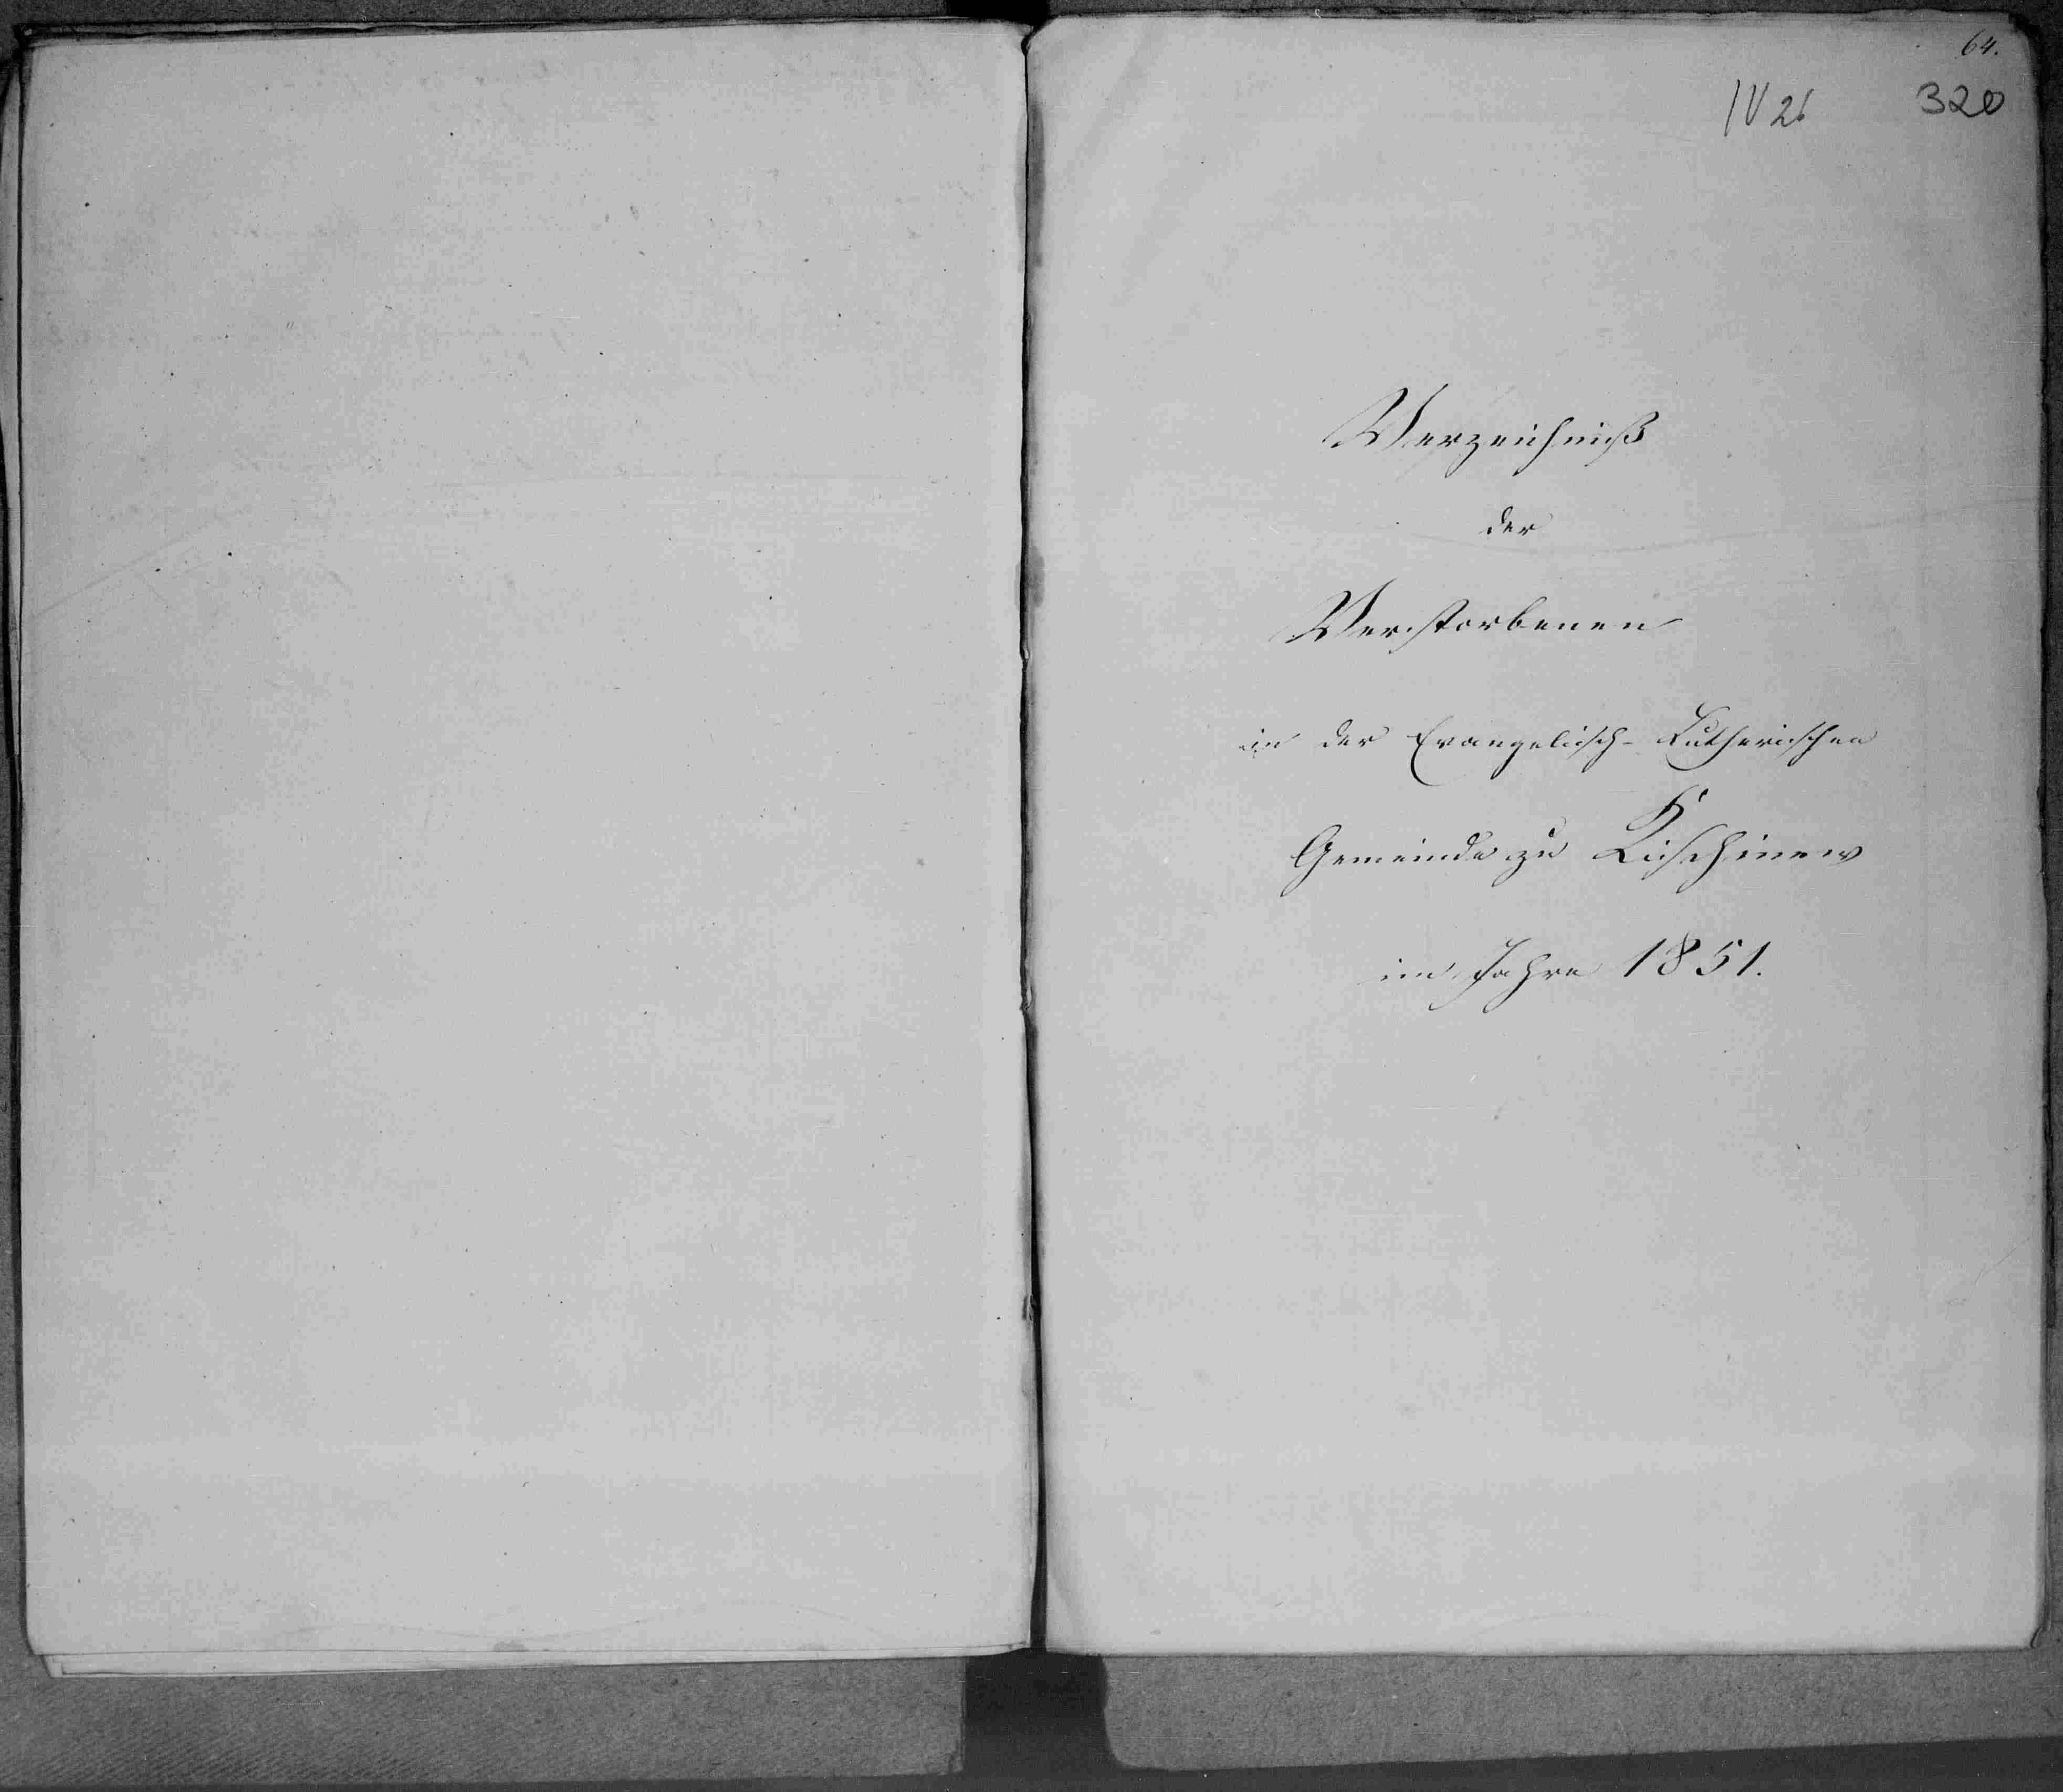 64.
IV 26 320
Verzeichniß
der
Verstorbenen
in der Evangelisch-Lutherischen
Gemeinde zu Kischinew
im Jahre 1851.